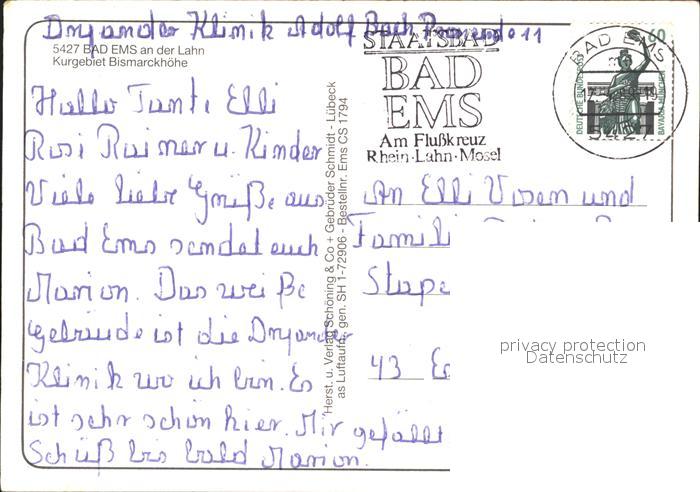 Dryander Klinik Adolf Bach Promende 11
5427 BAD EMS an der Lahn
Kurgebiet Bismarckhöhe
Hallo Tante Elli
Rosi Rainer u. Kinder
Viele liebe Grüße aus
Bad Ems sendet euch
Marion. Das weiße
Gebäude ist die Dryander
Klinik wo ich bin. Es
ist sehr schön hier. Mir gefällt
Schüß bis bald Marion.
Herst. u. Verlag Schöning & Co + Gebrüder Schmidt - Lübeck
as Luftaufn. gen. SH 1-72906 - Bestellnr. Ems CS 1794
STAATSBAD
BAD
EMS
Am Flußkreuz
Rhein·Lahn·Mosel
BAD EMS
60
DEUTSCHE BUNDESPOST
BAVARIA MÜNCHEN
An Elli Vosen und
Famili
Stape
43 Es
privacy protection
Datenschutz